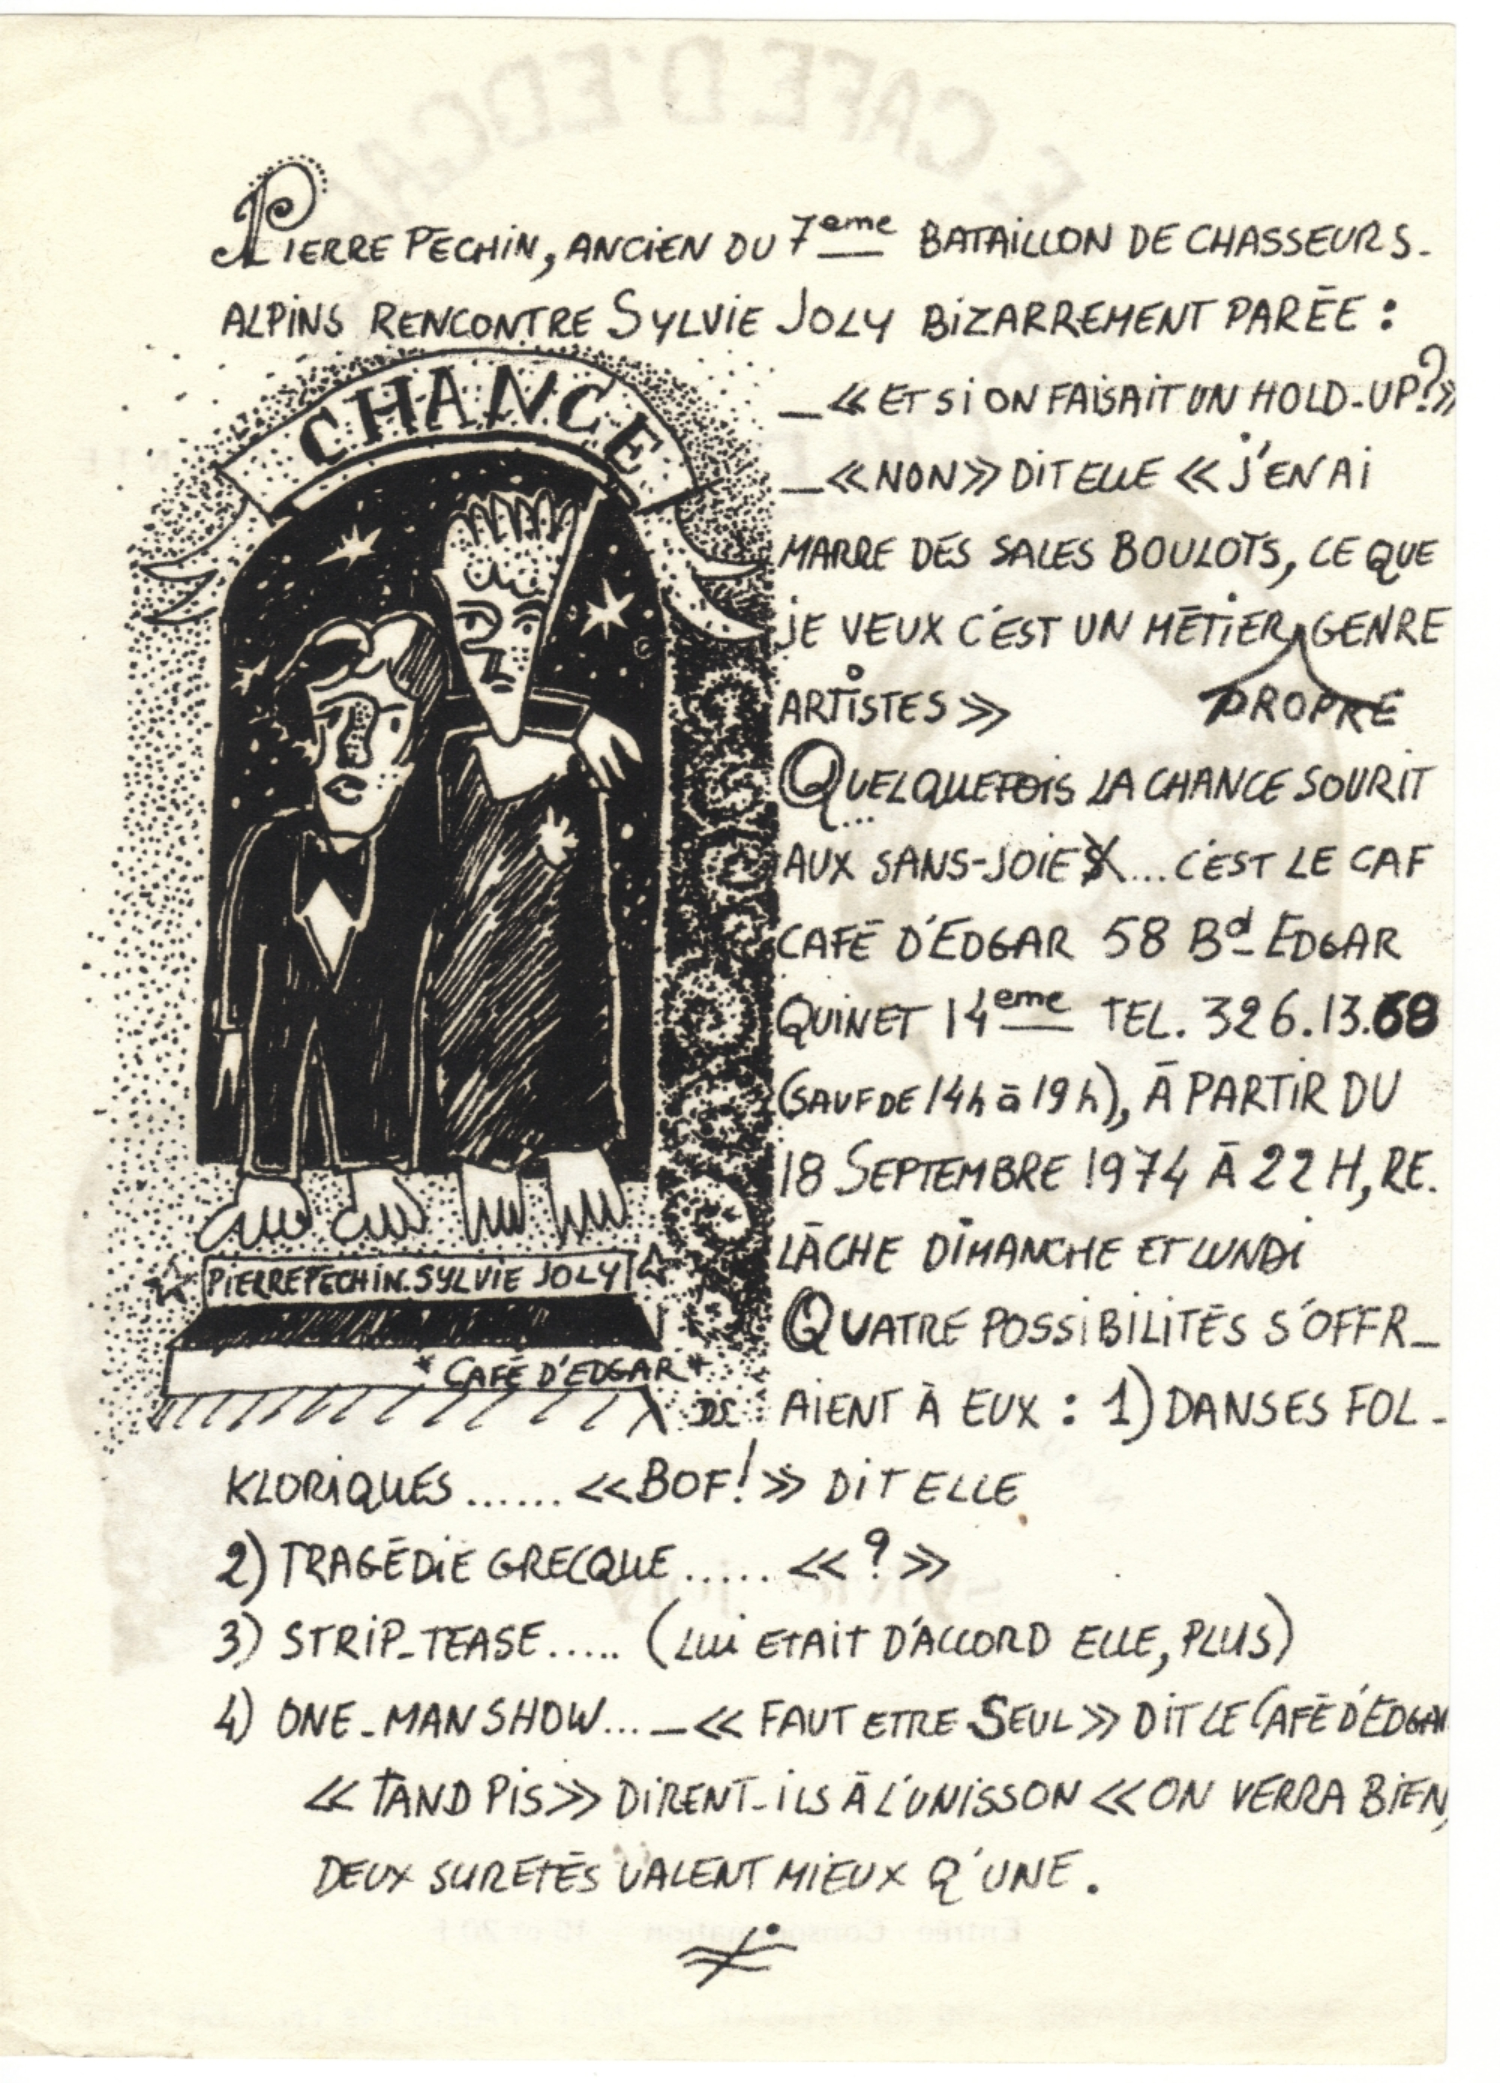 PIERRE PECHIN, ANCIEN DU 7eme BATAILLON DE CHASSEURS-
ALPINS RENCONTRE SYLVIE JOLY BIZARREMENT PARÉE :
CHANCE
_ « ET SI ON FAISAIT UN HOLD-UP? »
_ « NON » DIT ELLE « J'EN AI
MARRE DES SALES BOULOTS, CE QUE
JE VEUX C'EST UN MÉTIER GENRE
PROPRE
ARTISTES »
QUELQUEFOIS LA CHANCE SOURIT
AUX SANS-JOIE ... C'EST LE CAF
CAFÉ D'EDGAR 58 Bd EDGAR
QUINET 14eme TEL. 326.13.68
(SAUF DE 14h à 19h), À PARTIR DU
18 SEPTEMBRE 1974 À 22 H, RE.
LÂCHE DIMANCHE ET LUNDI
PIERRE PECHIN. SYLVIE JOLY
* CAFÉ D'EDGAR *
DS
QUATRE POSSIBILITÉS S'OFFR_
AIENT À EUX : 1) DANSES FOL-
KLORIQUES ...... « BOF! » DIT ELLE
2) TRAGÉDIE GRECQUE ..... « ? »
3) STRIP-TEASE ..... (LUI ETAIT D'ACCORD ELLE, PLUS)
4) ONE-MAN SHOW... _ « FAUT ETRE SEUL » DIT LE CAFÉ D'EDGAR
« TAND PIS » DIRENT-ILS À L'UNISSON « ON VERRA BIEN,
DEUX SURETÉS VALENT MIEUX Q'UNE.